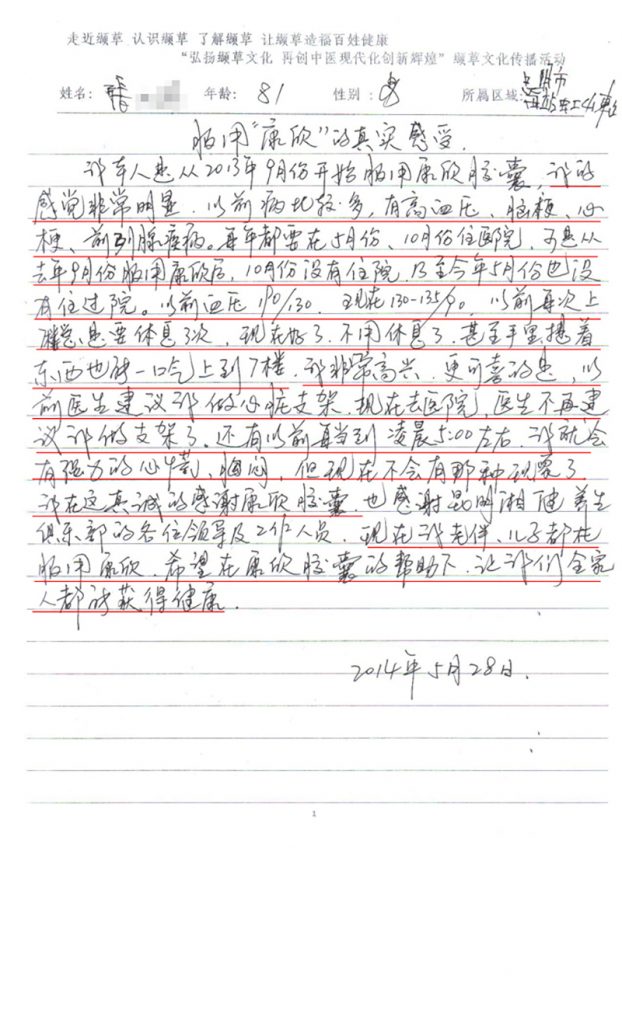 走近缬草 认识缬草 了解缬草 让缬草造福百姓健康
“弘扬缬草文化 再创中医现代化创新辉煌”缬草文化传播活动
姓名: 年龄: 81 性别: 男 所属区域: 昆明市
服用“康欣”的真实感受.
我本人是从2013年9月份开始服用康欣胶囊,我的
感觉非常明显.以前病比较多,有高血压、脑梗、心
梗、前列腺疾病。每年都要在5月份、10月份住医院,可是从
去年9月份服用康欣后,10月份没有住院,乃至今年5月份也没
有住过院。以前血压190/130.现在130-135/90.以前每次上
楼总是要休息3次,现在好了.不用休息了.甚至手里提着
东西也能一口气上到7楼.我非常高兴.更可喜的是,以
前医生建议我做心脏支架.现在去医院,医生不再建
议我做支架了.还有以前每当到凌晨5:00左右.我就会
有强力的心绞痛,胸闷,但现在不会有那种现象了.
我在这真诚的感谢康欣胶囊.也感谢昆明湘健养生
俱乐部的各位领导及工作人员.现在我老伴、儿子都在
服用康欣.希望在康欣胶囊的帮助下.让我们全家
人都能获得健康.
2014年5月28日.
1